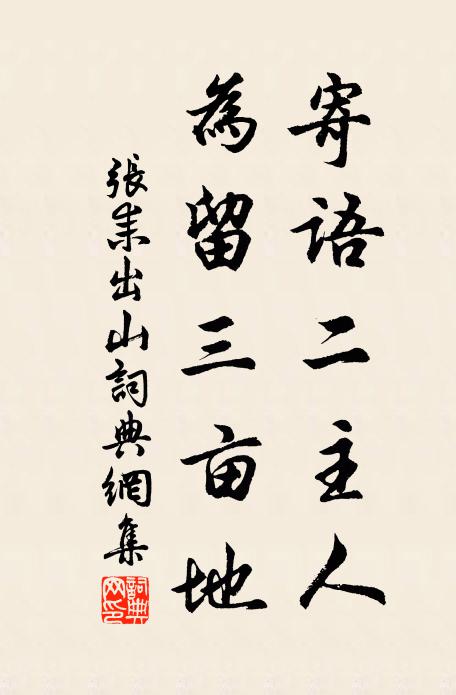 寄語二主人
為留三亩地
張耒出山詞典網集
詞典网印